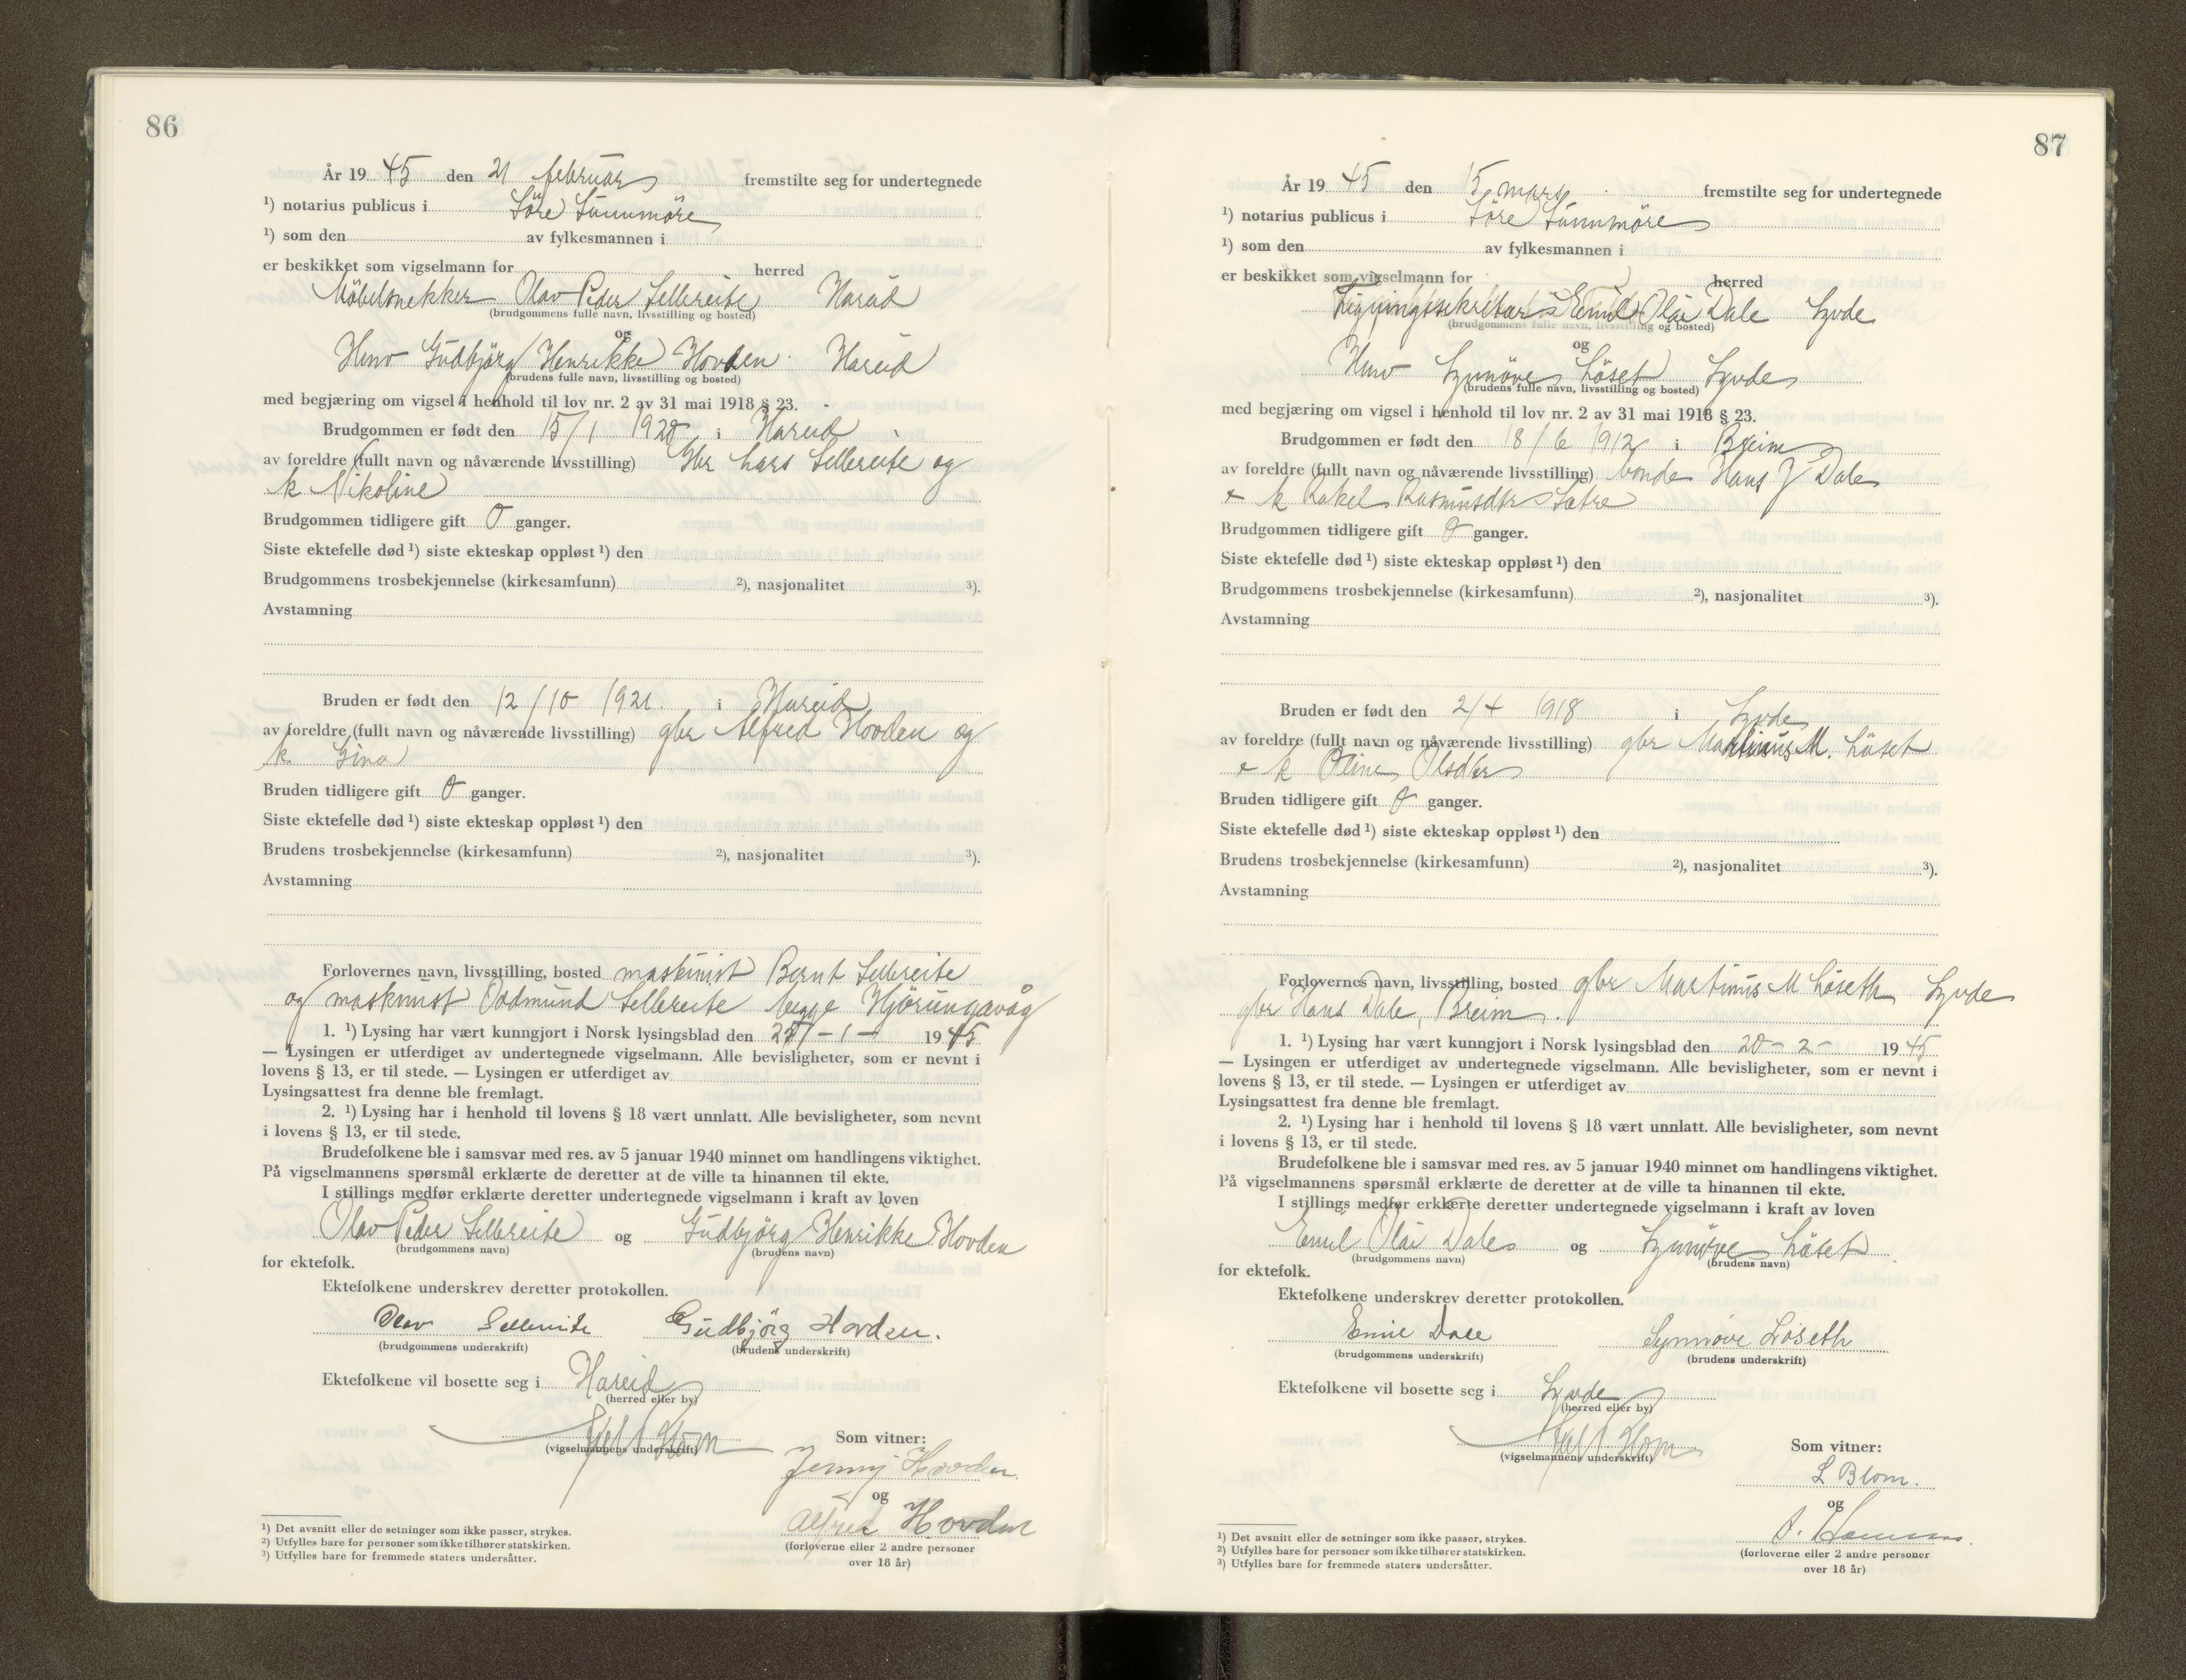 86
År 19 45 den 21 februar fremstilte seg for undertegnede
¹) notarius publicus i Söre Sunnmöre
¹) som den av fylkesmannen i
er beskikket som vigselmann for herred
Möbelsnekker Olav Peder Sellereite Hareid
(brudgommens fulle navn, livsstilling og bosted)
og
Gudbjörg Henrikke Hovden. Hareid
(brudens fulle navn, livsstilling og bosted)
med begjæring om vigsel i henhold til lov nr. 2 av 31 mai 1918 § 23.
Brudgommen er født den 15/1 1920 i Hareid
av foreldre (fullt navn og nåværende livsstilling) Gbr Lars Sellereite og
k Nikoline
Brudgommen tidligere gift 0 ganger.
Siste ektefelle død ¹) siste ekteskap oppløst ¹) den
Brudgommens trosbekjennelse (kirkesamfunn) ²), nasjonalitet ³).
Avstamning
Bruden er født den 12/10 1921. i Hareid
av foreldre (fullt navn og nåværende livsstilling) gbr Alfred Hovden og
k Gina
Bruden tidligere gift 0 ganger.
Siste ektefelle død ¹) siste ekteskap oppløst ¹) den
Brudens trosbekjennelse (kirkesamfunn) ²), nasjonalitet ³).
Avstamning
Forlovernes navn, livsstilling, bosted maskinist Bernt Sellereite
og maskinist Oddmund Sellereite begge Hjörungavåg
1. ¹) Lysing har vært kunngjort i Norsk lysingsblad den - 1 - 19 45
— Lysingen er utferdiget av undertegnede vigselmann. Alle bevisligheter, som er nevnt i
lovens § 13, er til stede. — Lysingen er utferdiget av
Lysingsattest fra denne ble fremlagt.
2. ¹) Lysing har i henhold til lovens § 18 vært unnlatt. Alle bevisligheter, som nevnt
i lovens § 13, er til stede.
Brudefolkene ble i samsvar med res. av 5 januar 1940 minnet om handlingens viktighet.
På vigselmannens spørsmål erklærte de deretter at de ville ta hinannen til ekte.
I stillings medfør erklærte deretter undertegnede vigselmann i kraft av loven
Olav Peder Sellereite og Gudbjörg Henrikke Hovden
(brudgommens navn) (brudens navn)
for ektefolk.
Ektefolkene underskrev deretter protokollen.
Olav Sellereite Gudbjörg Hovden.
(brudgommens underskrift) (brudens underskrift)
Ektefolkene vil bosette seg i Hareid
(herred eller by)
(vigselmannens underskrift)
Som vitner:
Jenny Hovden.
og
Alfred Hovden
(forloverne eller 2 andre personer
over 18 år)
¹) Det avsnitt eller de setninger som ikke passer, strykes.
²) Utfylles bare for personer som ikke tilhører statskirken.
³) Utfylles bare for fremmede staters undersåtter.
87
År 19 45 den 15 mars fremstilte seg for undertegnede
¹) notarius publicus i Söre Sunnmöre
¹) som den av fylkesmannen i
er beskikket som vigselmann for herred
Ligningssekretær Emil Olai Dale Syvde
(brudgommens fulle navn, livsstilling og bosted)
og
Synnöve Löset Syvde
(brudens fulle navn, livsstilling og bosted)
med begjæring om vigsel i henhold til lov nr. 2 av 31 mai 1918 § 23.
Brudgommen er født den 18/6 1912 i Breim
av foreldre (fullt navn og nåværende livsstilling) bonde Hans J Dale
+ k Rakel Rasmusdtr Sætre
Brudgommen tidligere gift 0 ganger.
Siste ektefelle død ¹) siste ekteskap oppløst ¹) den
Brudgommens trosbekjennelse (kirkesamfunn) ²), nasjonalitet ³).
Avstamning
Bruden er født den 2/4 1918 i Syvde
av foreldre (fullt navn og nåværende livsstilling) gbr Martinus M. Löset
+ k Oline Olsdtr
Bruden tidligere gift 0 ganger.
Siste ektefelle død ¹) siste ekteskap oppløst ¹) den
Brudens trosbekjennelse (kirkesamfunn) ²), nasjonalitet ³).
Avstamning
Forlovernes navn, livsstilling, bosted gbr Martinus M Löseth Syvde
gbr Hans Dale, Breim.
1. ¹) Lysing har vært kunngjort i Norsk lysingsblad den 20 - 2 - 19 45
— Lysingen er utferdiget av undertegnede vigselmann. Alle bevisligheter, som er nevnt i
lovens § 13, er til stede. — Lysingen er utferdiget av
Lysingsattest fra denne ble fremlagt.
2. ¹) Lysing har i henhold til lovens § 18 vært unnlatt. Alle bevisligheter, som nevnt
i lovens § 13, er til stede.
Brudefolkene ble i samsvar med res. av 5 januar 1940 minnet om handlingens viktighet.
På vigselmannens spørsmål erklærte de deretter at de ville ta hinannen til ekte.
I stillings medfør erklærte deretter undertegnede vigselmann i kraft av loven
Emil Olai Dale og Synnöve Löset
(brudgommens navn) (brudens navn)
for ektefolk.
Ektefolkene underskrev deretter protokollen.
Emil Dale Synnöve Löseth
(brudgommens underskrift) (brudens underskrift)
Ektefolkene vil bosette seg i Syvde
(herred eller by)
(vigselmannens underskrift)
Som vitner:
L Blom.
og
(forloverne eller 2 andre personer
over 18 år)
¹) Det avsnitt eller de setninger som ikke passer, strykes.
²) Utfylles bare for personer som ikke tilhører statskirken.
³) Utfylles bare for fremmede staters undersåtter.